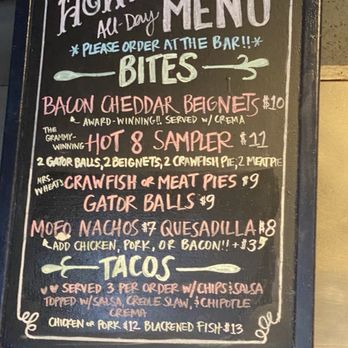 All-Day MENU
*PLEASE ORDER AT THE BAR!!*
BITES
BACON CHEDDAR BEIGNETS $10
AWARD-WINNING!! SERVED W/ CREMA
THE GRAMMY-WINNING HOT 8 SAMPLER $11
2 GATOR BALLS, 2 BEIGNETS, 2 CRAWFISH PIE, 2 MEAT PIE
MRS. WHEAT'S CRAWFISH OR MEAT PIES $9
GATOR BALLS $9
MOFO NACHOS $7 QUESADILLA $8
ADD CHICKEN, PORK, OR BACON!! +$3
TACOS
SERVED 3 PER ORDER W/ CHIPS & SALSA
TOPPED W/ SALSA, CREOLE SLAW, & CHIPOTLE
CREMA
CHICKEN OR PORK $12 BLACKENED FISH $13